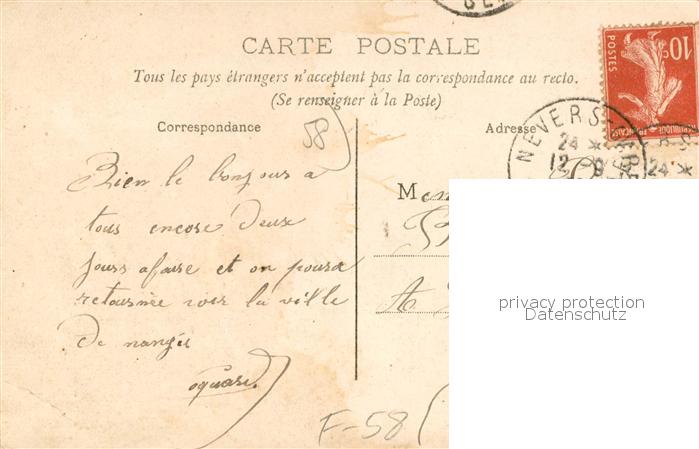 CARTE POSTALE
Tous les pays étrangers n'acceptent pas la correspondance au recto.
(Se renseigner à la Poste)
Correspondance
58
Adresse
10c
POSTES
REPUBLIQUE FRANÇAISE
NEVERS-GARE
24 *
12 9
24 *
Bien le bonjour a
tous encore deux
jours afaire et on poura
retournée voir la ville
de nangis
M
A
privacy protection
Datenschutz
F-58